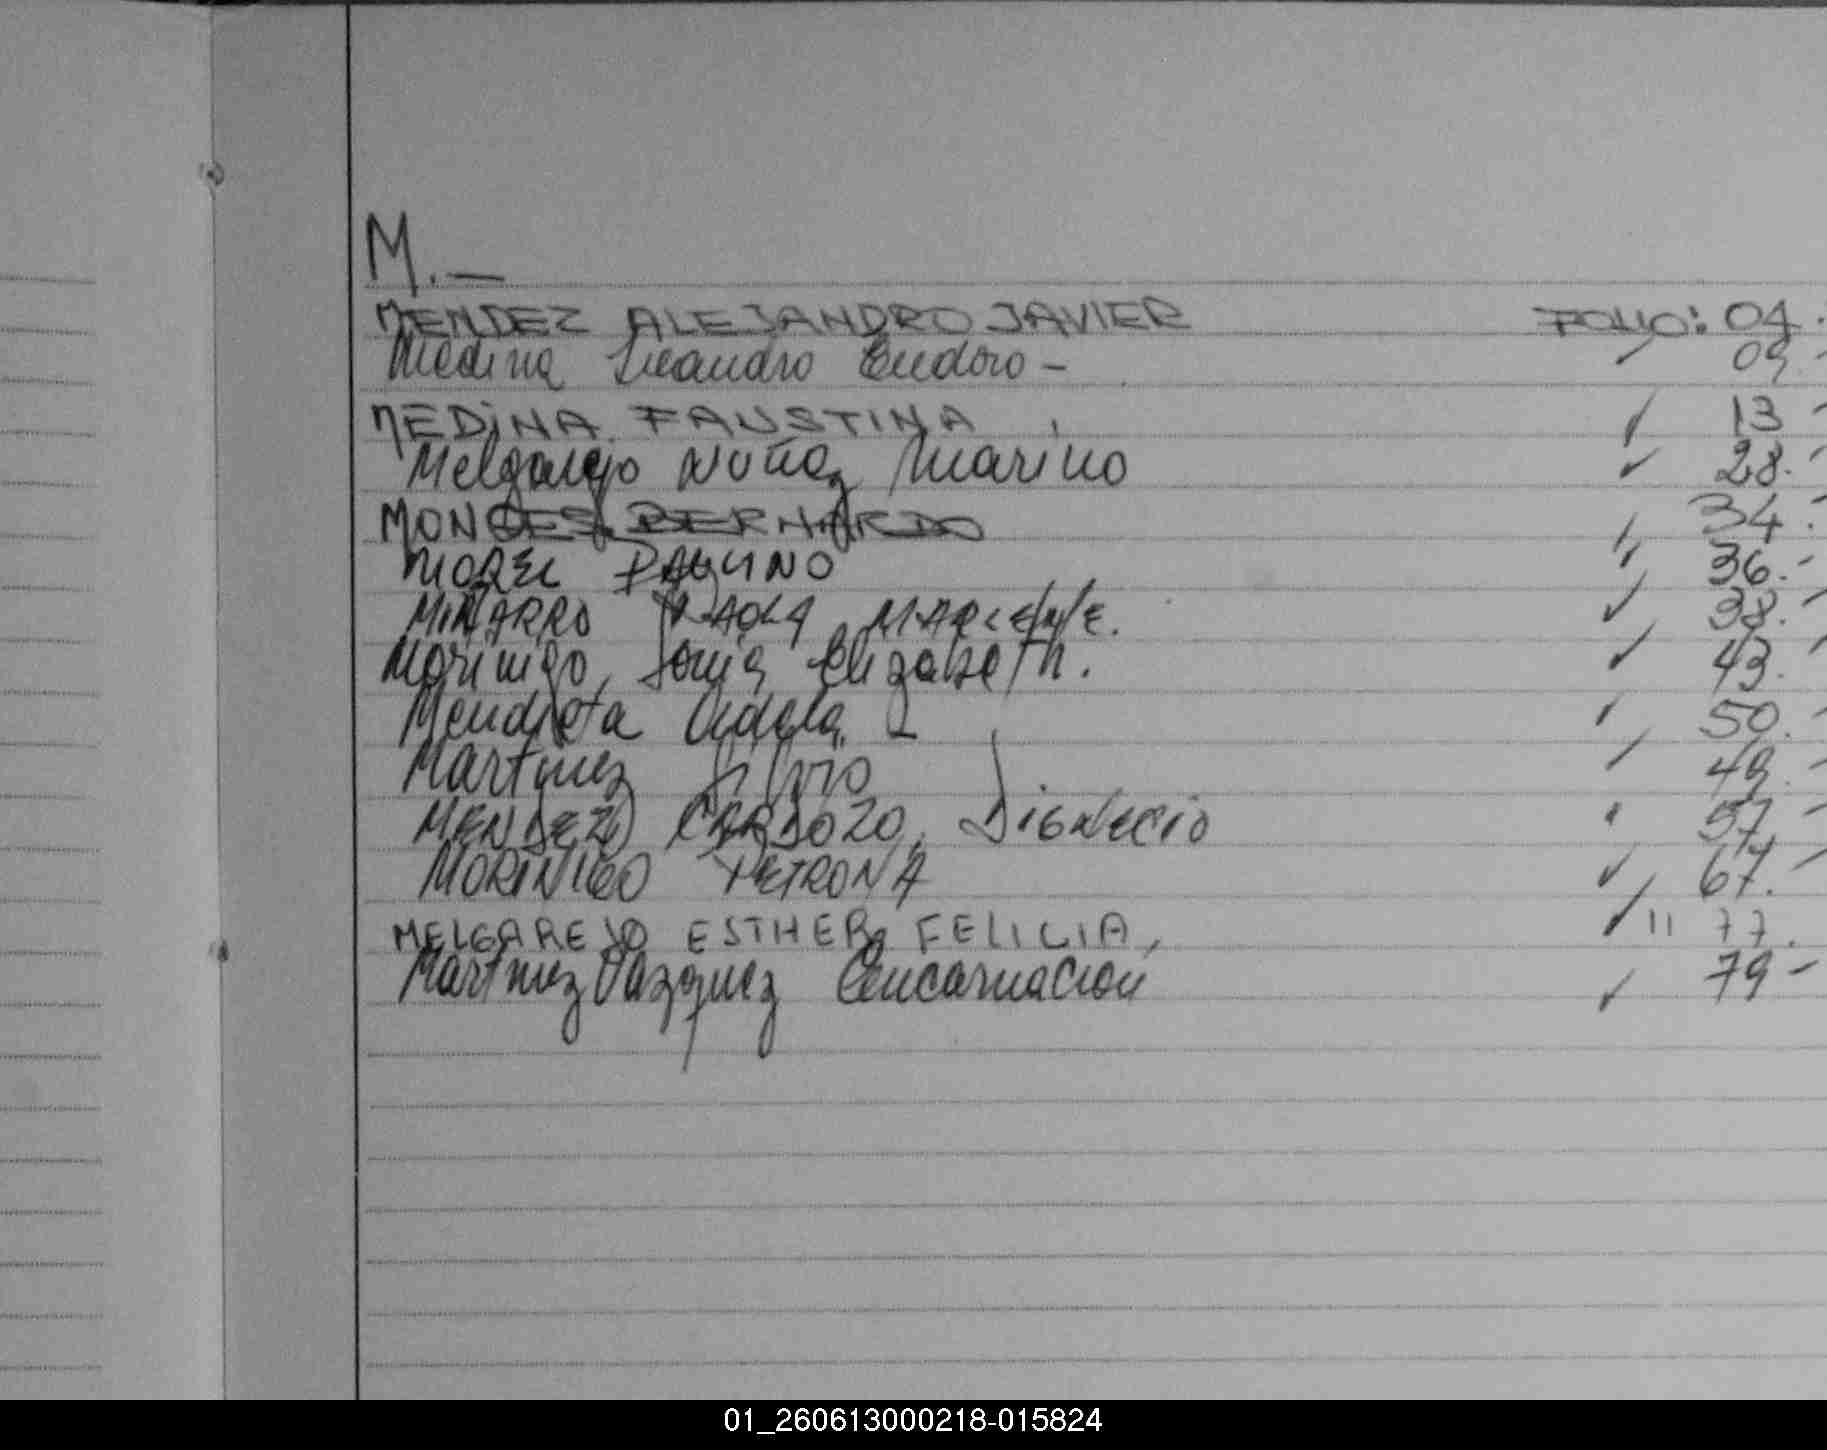 M.—
MENDEZ ALEJANDRO JAVIER FOLIO: 04.
Medina Leandro Eudoro - 09.-
MEDINA FAUSTINA, 13 -
Melgarejo Nuñez Marino 28.-
MONGES BERNARDO 34.-
MOREL PAULINO 36.-
MIÑARRO PAOLA MARLENE. 38.-
Morinigo, Sonia Elizabeth. 43.-
Mendieta - 50.-
Martinez 49.-
MENDEZ CARDOZO, Dignecio 57.-
MORINIGO PETRONA 67.-
MELGAREJO ESTHER FELICIA, 11 77.
Martinez Vazquez Encarnacion 79 -
01_260613000218-015824